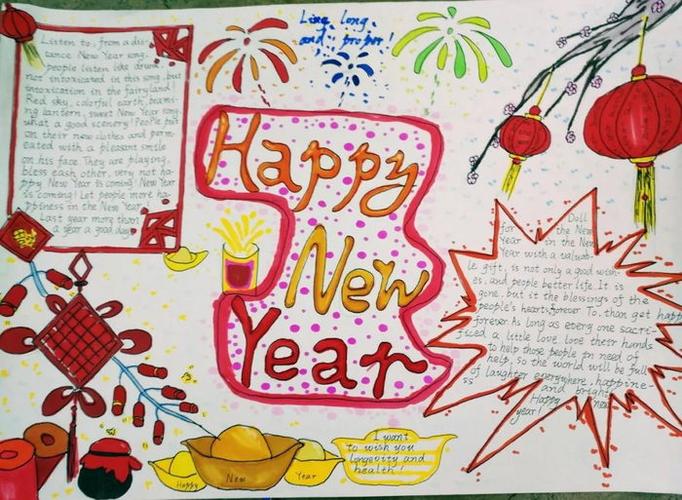 Live long
and proper!
Listen to, from a dis-
tance New Year song,
people listen like drunk,
not intoxicated in this song, but
intoxication in the fairyland!
Red sky, colorful earth, beami-
ng lantern, sweet New Year song
what a good scenery! People put
on their new clothes and perm-
eated with a pleasant smile
on his face. They are playing,
bless each other, very not ha-
ppy New Year is coming! New Year
is coming! Let people more ha-
ppiness in the New Year,
Last year more than
a year a good day!
Happy
New
Year
Doll
for the New
Year in the New
Year with a valuab-
le gift, is not only a good wish-
es, and people better life. It is
gone, but it the blessings of the
people's hearts, forever To. than get happ
forever. As long as every one sacri-
ficed a little love love their hands
to help those people in need of
help, so the world will be full
of laughter everywhere, happine-
ss and bright
Happy new
year!
I want
to wish you
longevity and
health!
Happy
New
Year